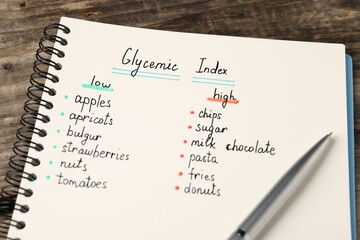 Glycemic Index
low
apples
apricots
bulgur
strawberries
nuts
tomatoes
high
chips
sugar
milk chocolate
pasta
fries
donuts